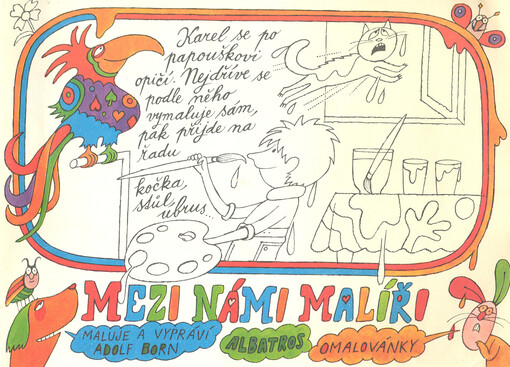 Karel se po
papouškovi
opičí. Nejdříve se
podle něho
vymaluje sám,
pak přijde na
řadu
kočka,
stůl,
ubrus...
MEZI NÁMI MALÍŘI
MALUJE A VYPRÁVÍ
ADOLF BORN
ALBATROS
OMALOVÁNKY